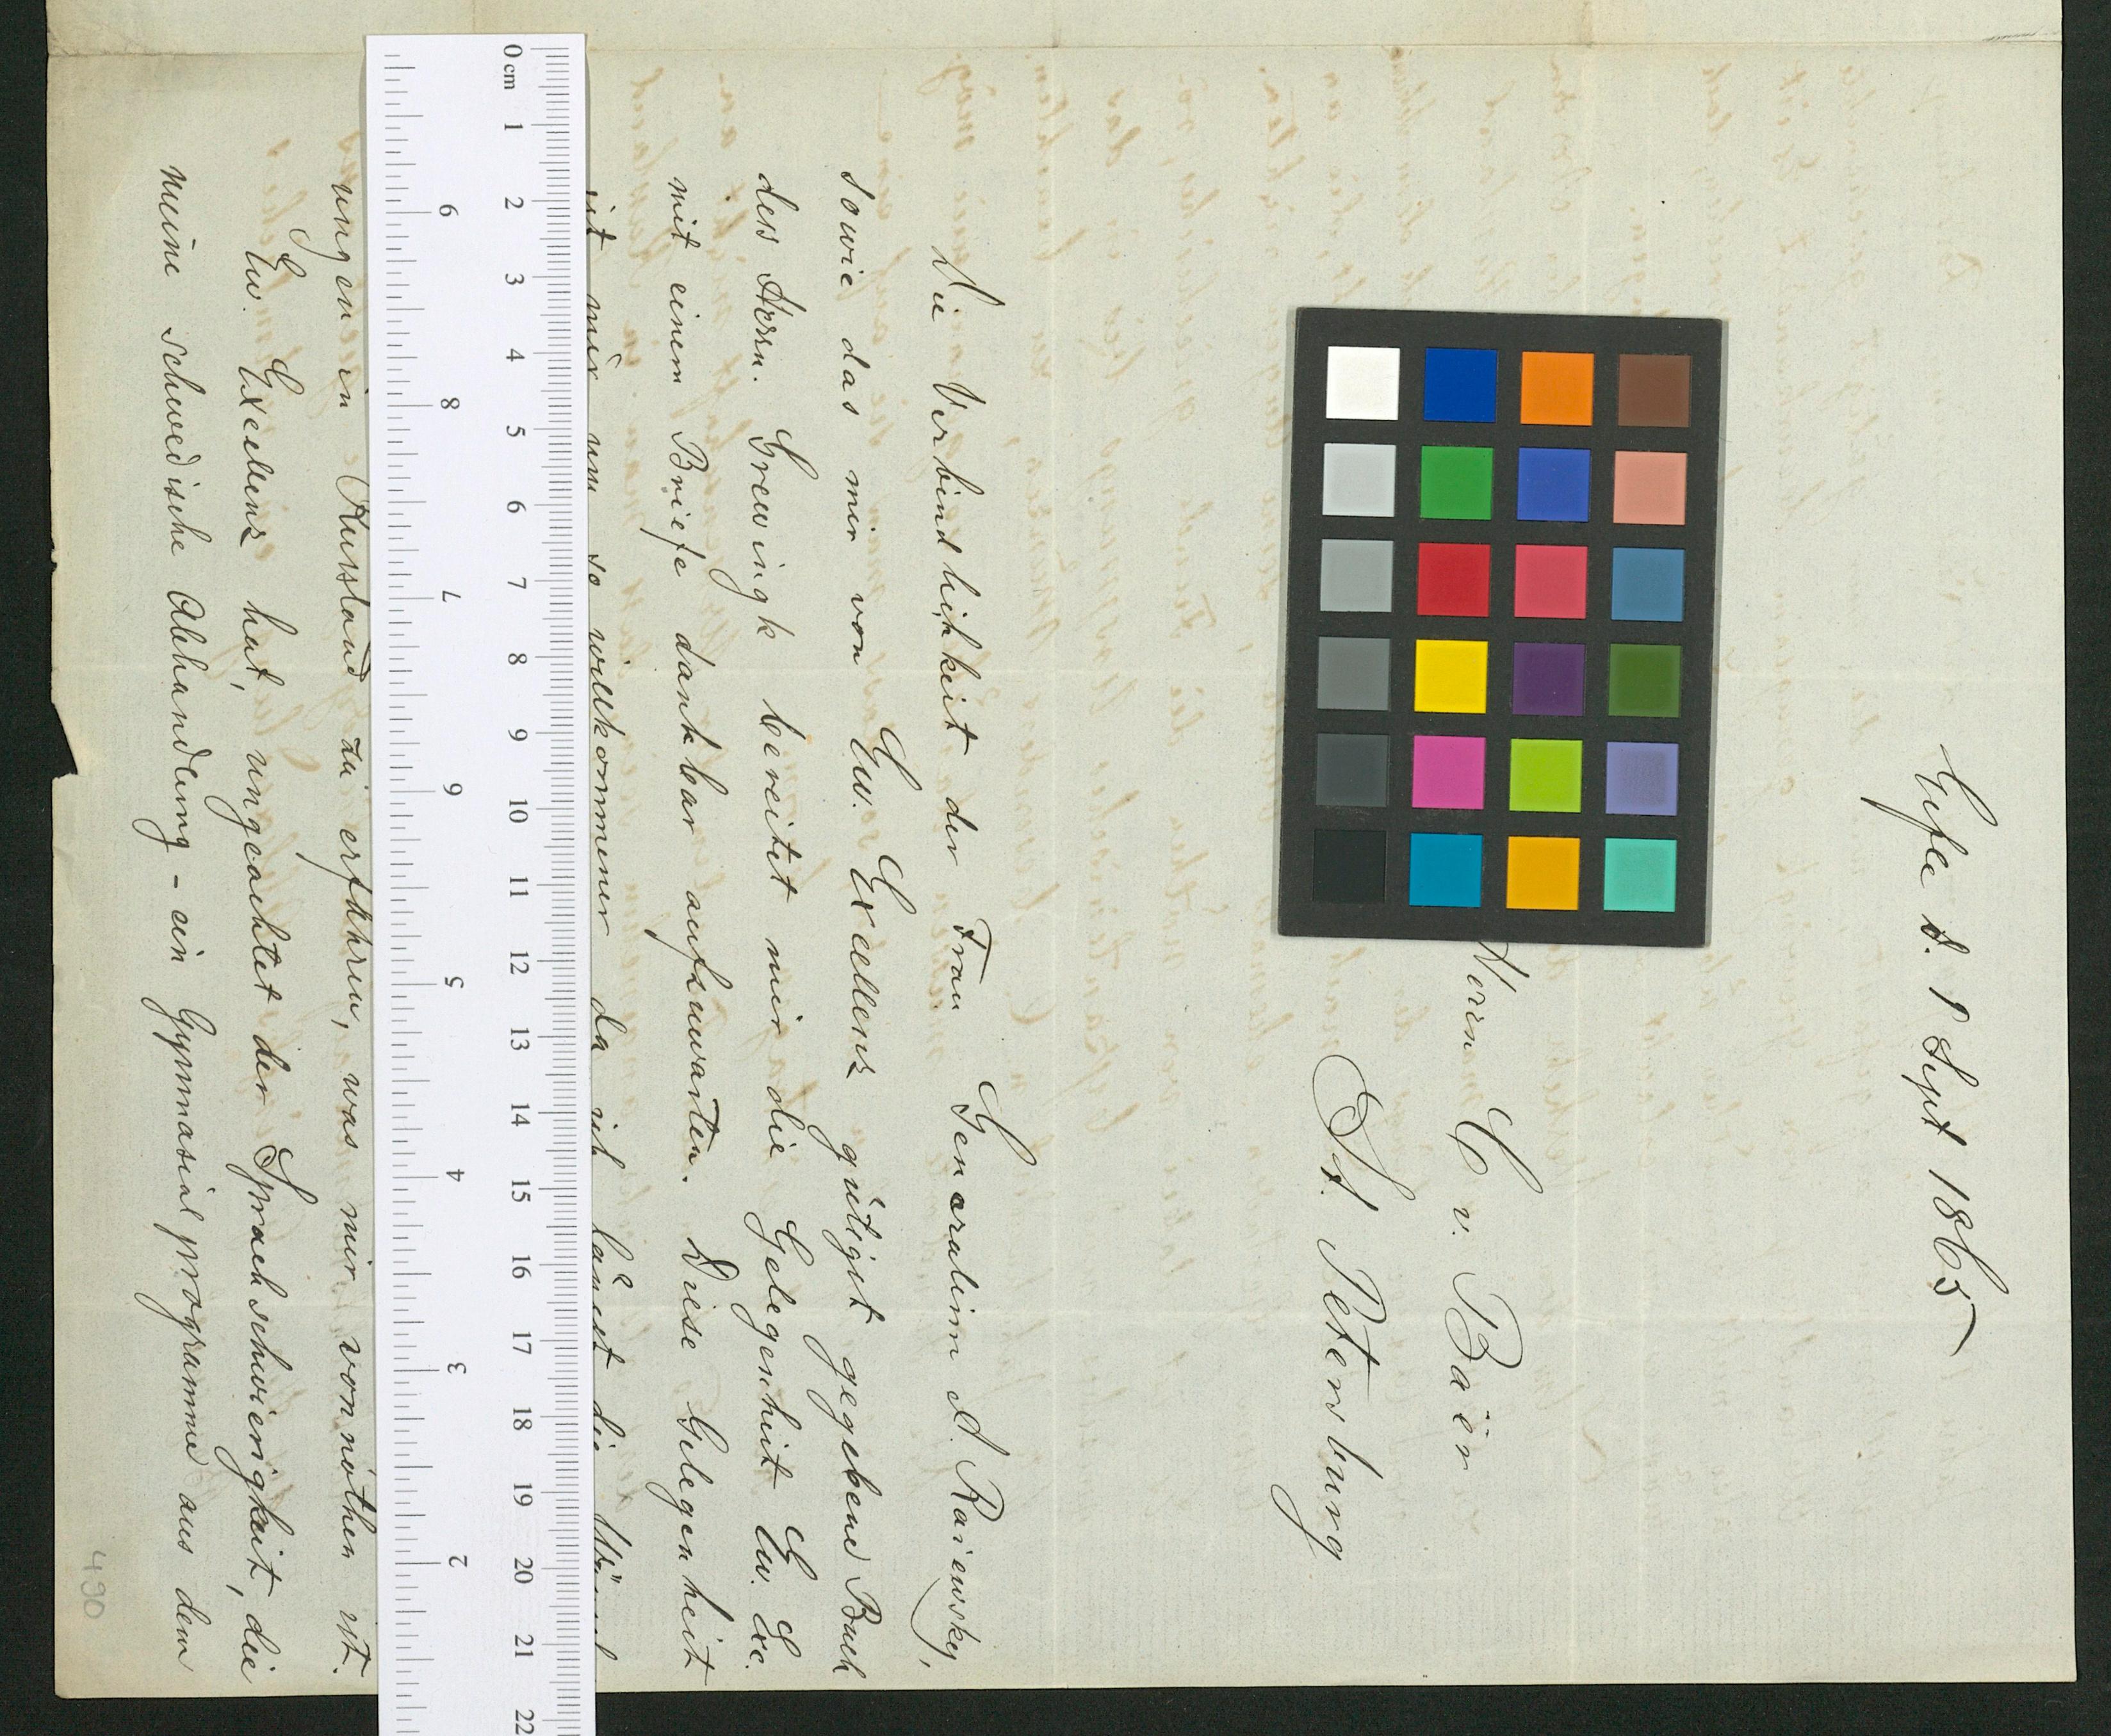 Gefle d. 1 Sept 1865
Herrn C v. Baër
St. Petersburg
Die Verbindlichkeit der Frau Generalinn A. Raiewsky,
sowie das mir von Ew. Excellens gütigst gegebene Buch
des Herrn. Grewingk bereitet mir die Gelegenheit Ew. Exc.
mit einem Briefe dankbar aufzuwarten. Diese Gelegenheit
ist mir um so willkommener da ich längst die
ungen in Russland zu erfahren, was mir vonnöthen ist.
Ew. Excellens hat, ungeachtet der Sprachschwierigkeit, die
meine schwedische Abhandlung - ein Gymnasialprogramme aus dem
490
0 cm 1 2 3 4 5 6 7 8 9 10 11 12 13 14 15 16 17 18 19 20 21 22
9 8 7 6 5 4 3 2